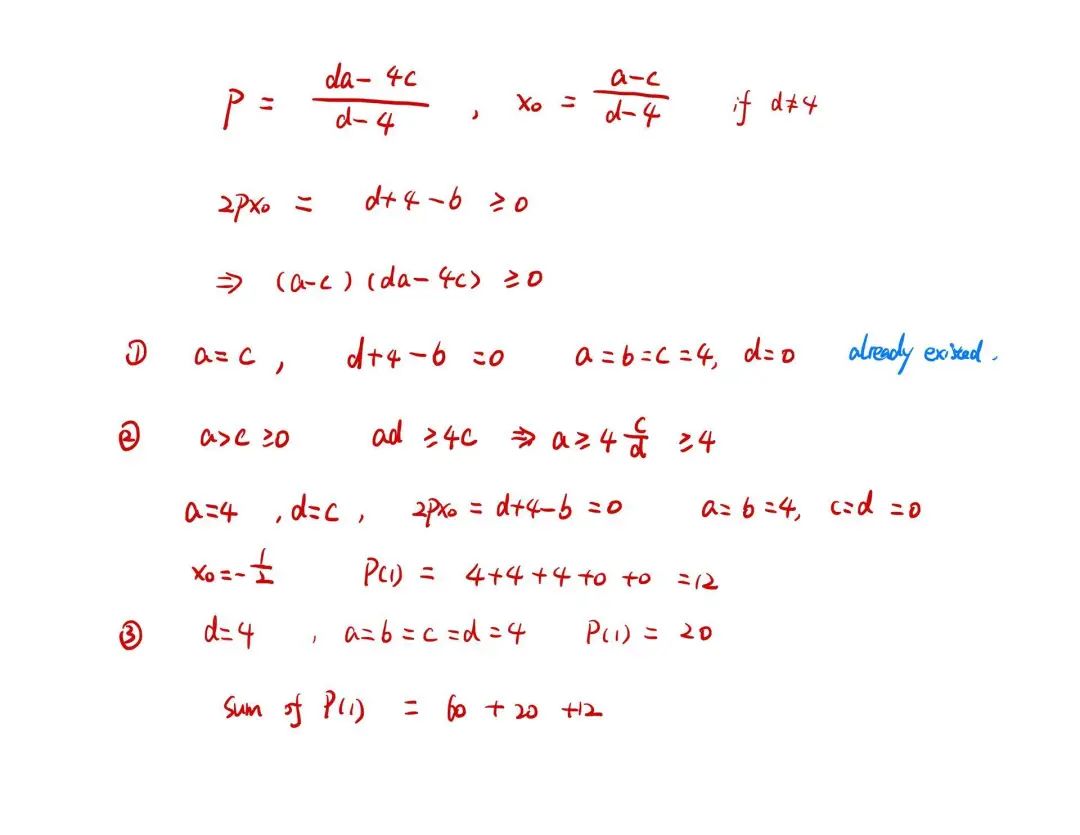 P = \frac{da-4c}{d-4} , x₀ = \frac{a-c}{d-4} if d≠4
2Px₀ = d+4-b ≥0
⇒ (a-c)(da-4c) ≥0
① a=c , d+4-b=0 a=b=c=4, d=0 already existed.
② a>c≥0 ad ≥4c ⇒ a≥4\frac{c}{d} ≥4
a=4 , d=c , 2Px₀ = d+4-b =0 a=b=4, c=d=0
x₀=-\frac{1}{2} P(1) = 4+4+4+0+0 =12
③ d=4 , a=b=c=d=4 P(1) = 20
Sum of P(1) = 60 + 20 +12